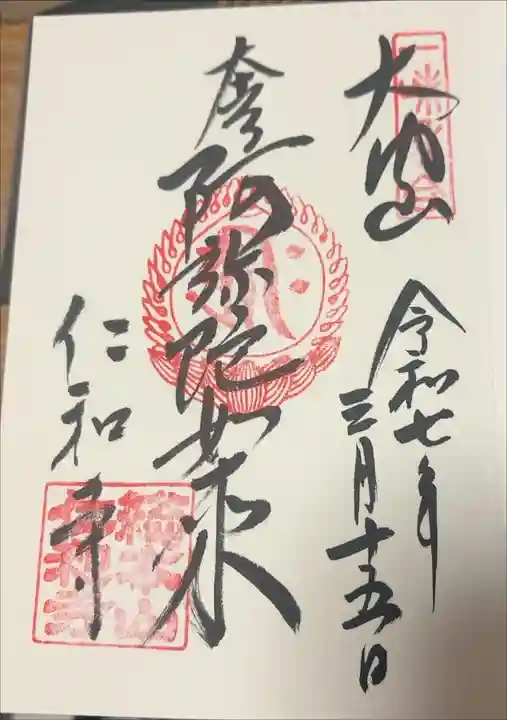 大内山
令和七年
三月十五日
阿弥陀如来
仁和寺